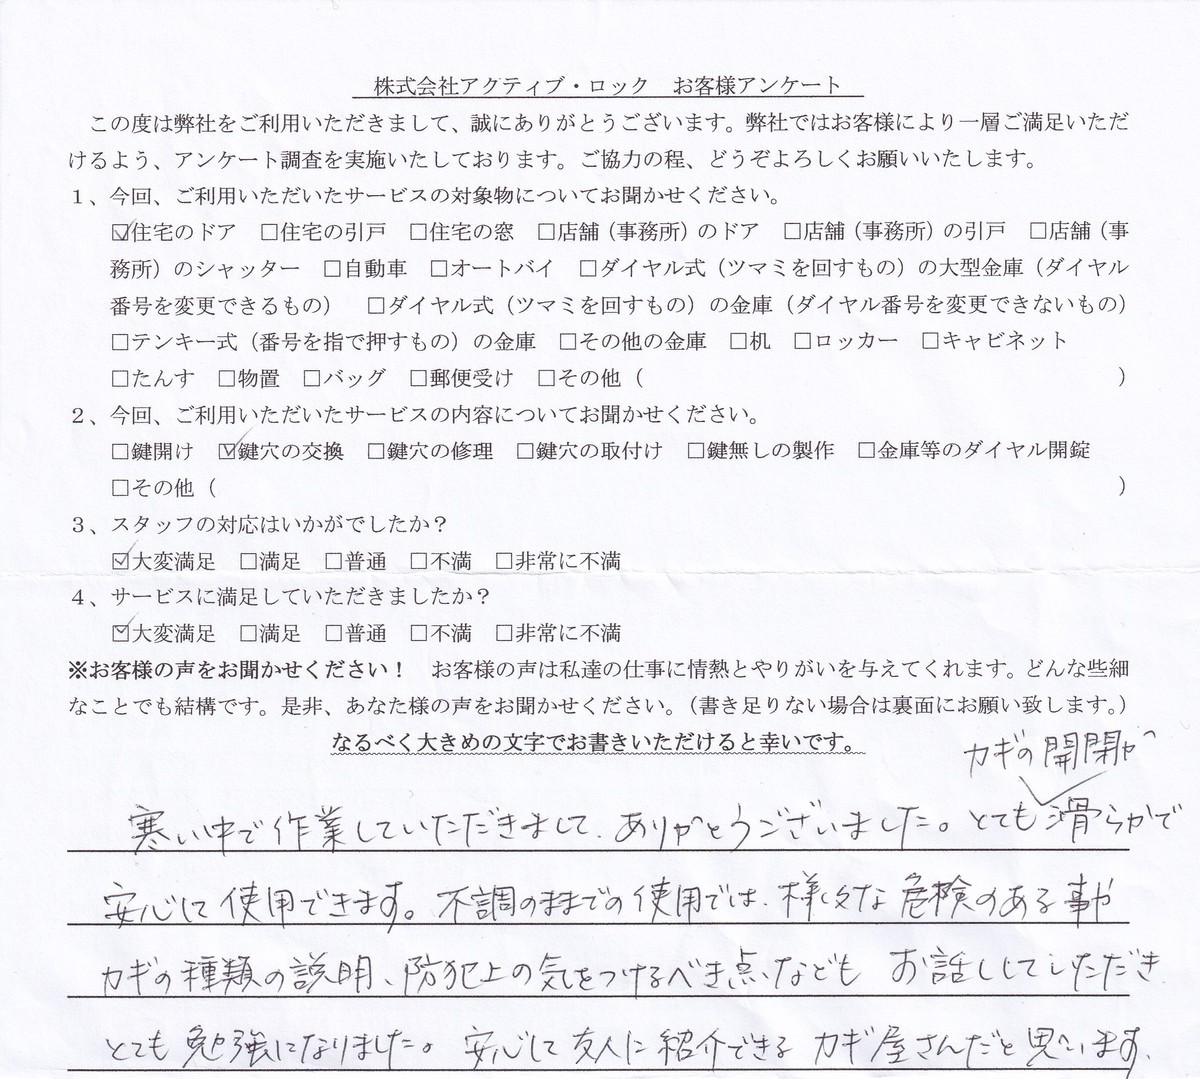 株式会社アクティブ・ロック　お客様アンケート
この度は弊社をご利用いただきまして、誠にありがとうございます。弊社ではお客様により一層ご満足いただ
けるよう、アンケート調査を実施いたしております。ご協力の程、どうぞよろしくお願いいたします。
１、今回、ご利用いただいたサービスの対象物についてお聞かせください。
☑住宅のドア　□住宅の引戸　□住宅の窓　□店舗（事務所）のドア　□店舗（事務所）の引戸　□店舗（事
務所）のシャッター　□自動車　□オートバイ　□ダイヤル式（ツマミを回すもの）の大型金庫（ダイヤル
番号を変更できるもの）　□ダイヤル式（ツマミを回すもの）の金庫（ダイヤル番号を変更できないもの）
□テンキー式（番号を指で押すもの）の金庫　□その他の金庫　□机　□ロッカー　□キャビネット
□たんす　□物置　□バッグ　□郵便受け　□その他（　　　）
２、今回、ご利用いただいたサービスの内容についてお聞かせください。
□鍵開け　☑鍵穴の交換　□鍵穴の修理　□鍵穴の取付け　□鍵無しの製作　□金庫等のダイヤル開錠
□その他（　　　）
３、スタッフの対応はいかがでしたか？
☑大変満足　□満足　□普通　□不満　□非常に不満
４、サービスに満足していただきましたか？
☑大変満足　□満足　□普通　□不満　□非常に不満
※お客様の声をお聞かせください！　お客様の声は私達の仕事に情熱とやりがいを与えてくれます。どんな些細
なことでも結構です。是非、あなた様の声をお聞かせください。（書き足りない場合は裏面にお願い致します。）
なるべく大きめの文字でお書きいただけると幸いです。
カギの開閉が
寒い中で作業していただきまして、ありがとうございました。とても滑らかで
安心して使用できます。不調のままでの使用では、様々な危険のある事や
カギの種類の説明、防犯上の気をつけるべき点、なども お話ししていただき
とても勉強になりました。安心して友人に紹介できるカギ屋さんだと思います、